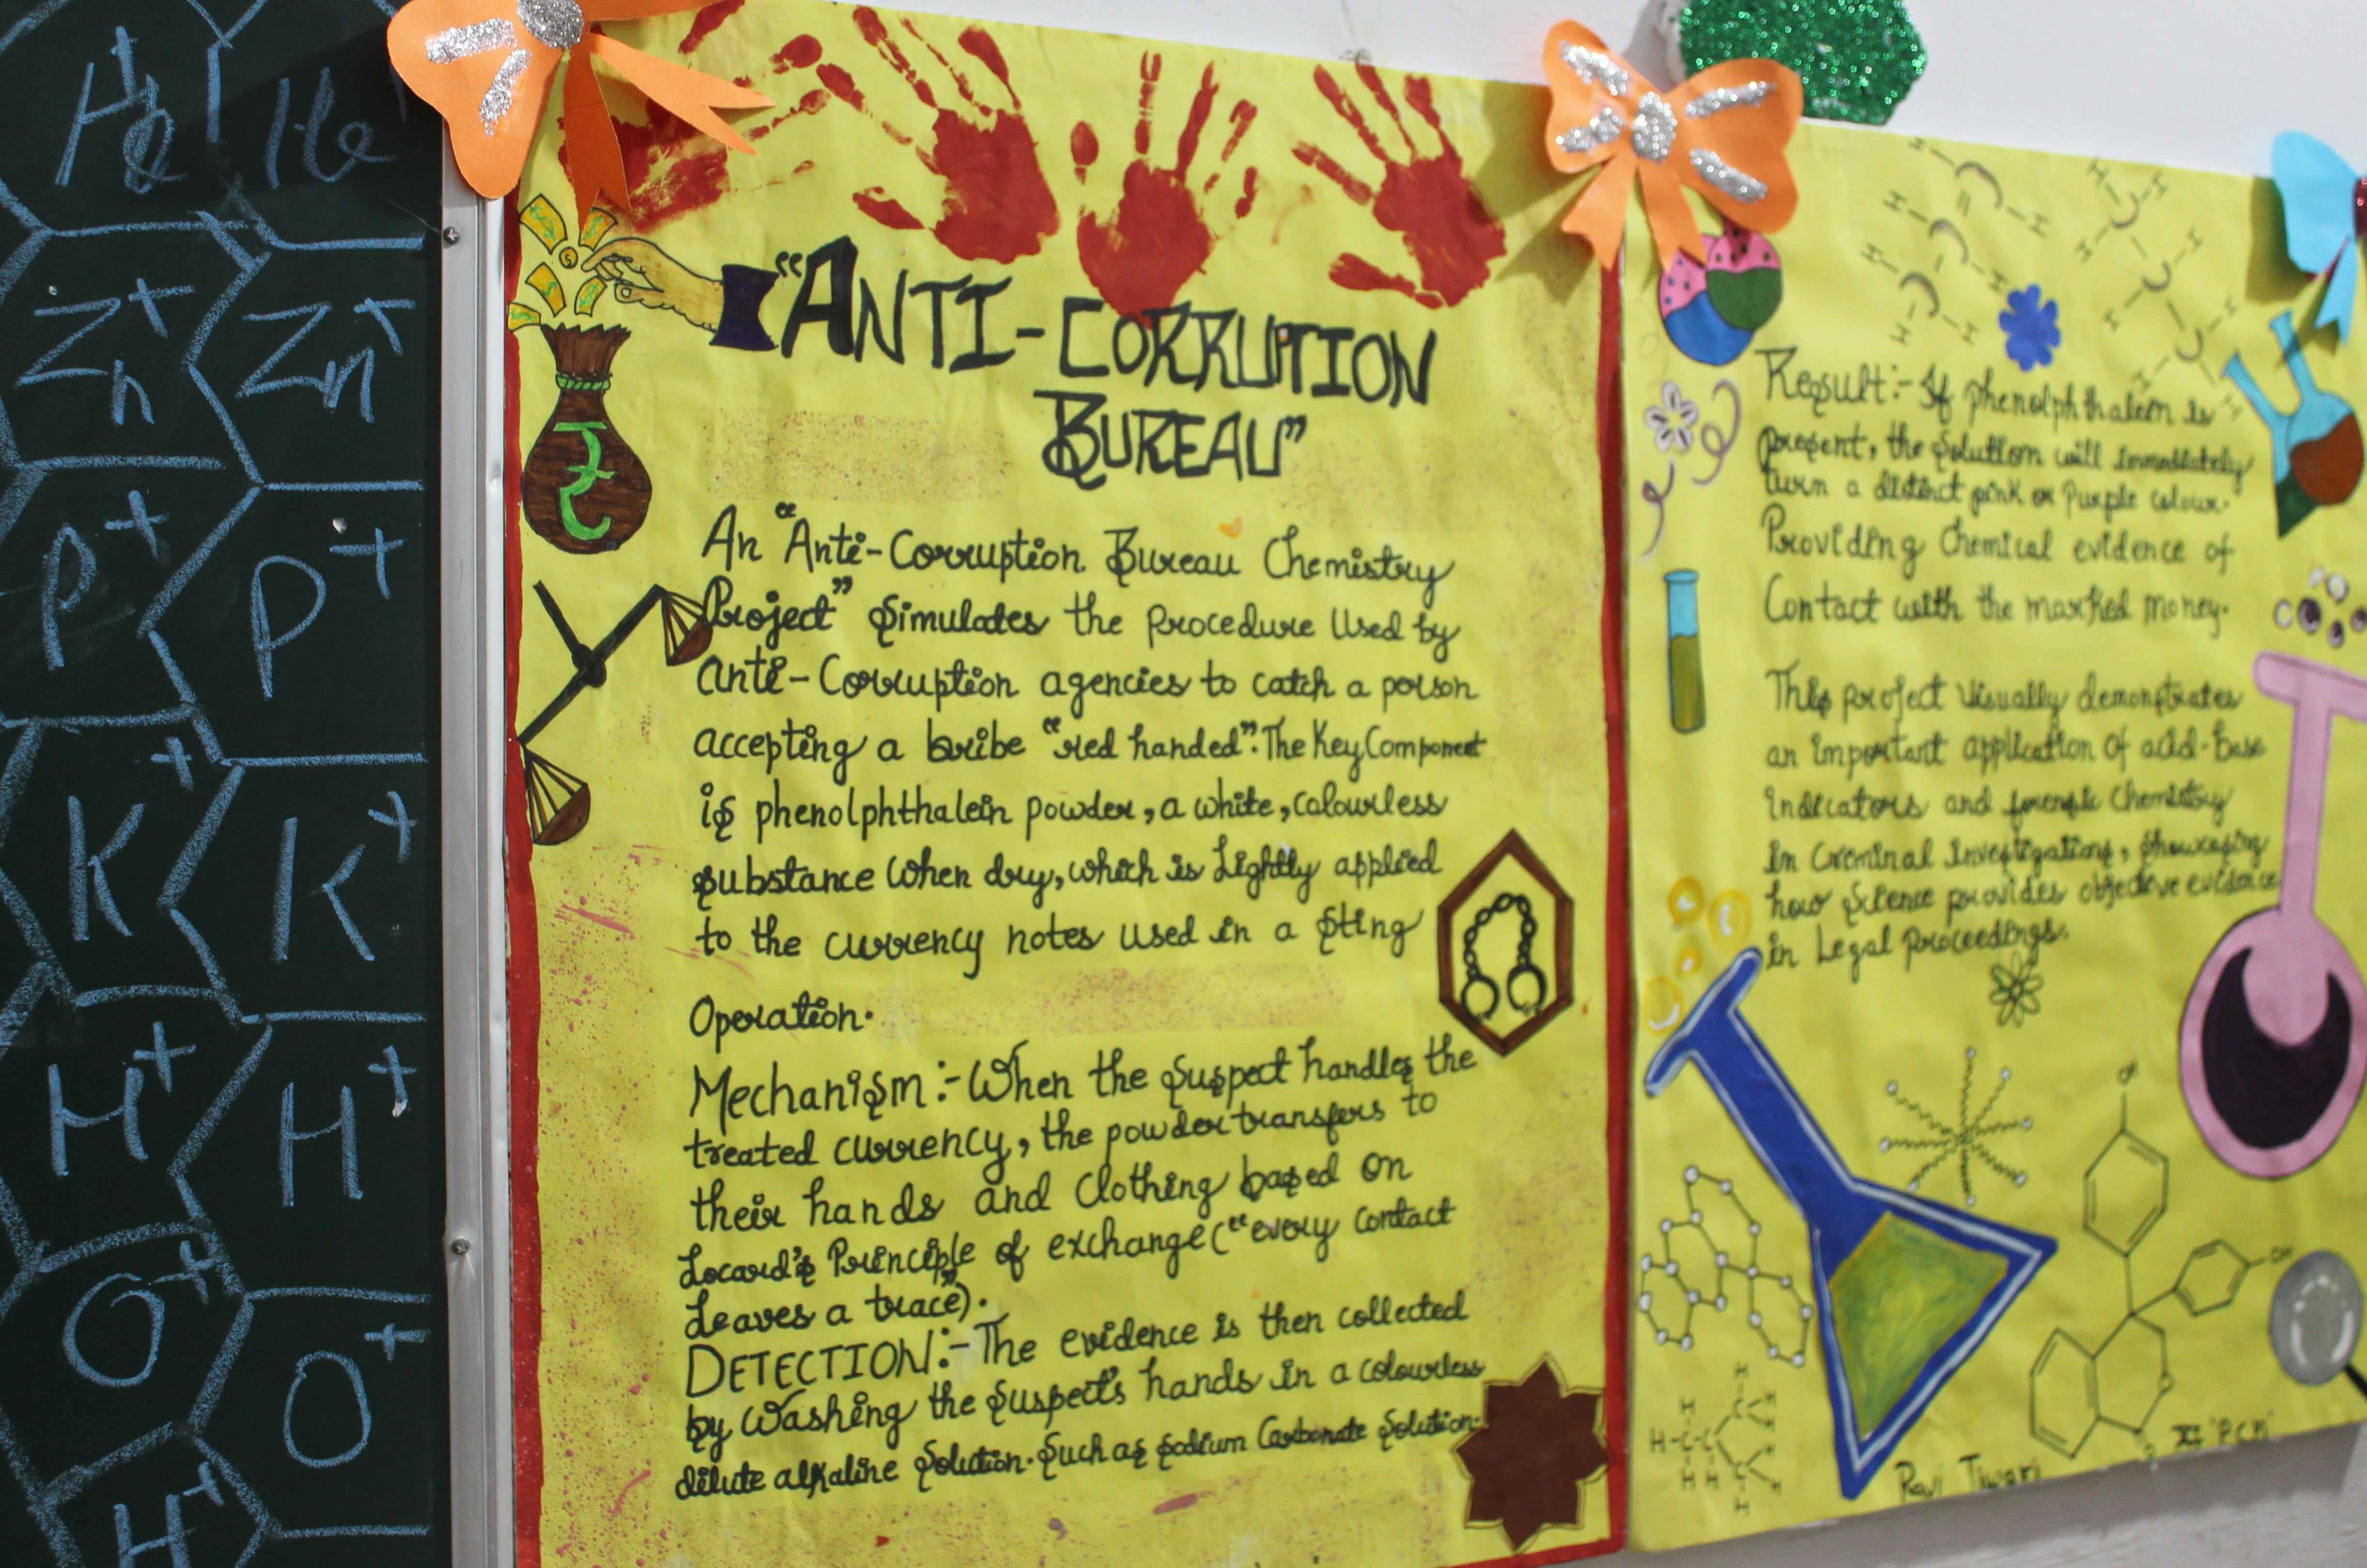 He+
He+
Zn+
Zn+
P+
P+
K+
K+
H+
H+
O+
O+
H+
"ANTI-CORRUPTION
BUREAU"
₹
An "Anti-Corruption Bureau Chemistry
Project" Simulates the Procedure Used by
anti-Corruption agencies to catch a person
accepting a bribe "red handed". The Key Component
is phenolphthalein powder, a white, colourless
substance when dry, which is Lightly applied
to the currency notes used in a Sting
Operation.
Mechanism:- When the Suspect handles the
treated currency, the powder transfers to
their hands and Clothing based on
Locard's Principle of exchange ("every contact
Leaves a trace").
DETECTION:- The evidence is then collected
by Washing the Suspect's hands in a colourless
dilute alkaline Solution. Such as Sodium Carbonate Solution.
Result:- If phenolphthalein is
present, the Solution will immediately
turn a distinct pink or Purple colour.
Providing Chemical evidence of
Contact with the marked money.
This project Visually demonstrates
an important application of acid-Base
indicators and forensic Chemistry
in Creminal Investigations, Showcasing
how Science provides objective evidence
in Legal Proceedings.
OH
OH
XI "PCM"
Ravi Tiwari